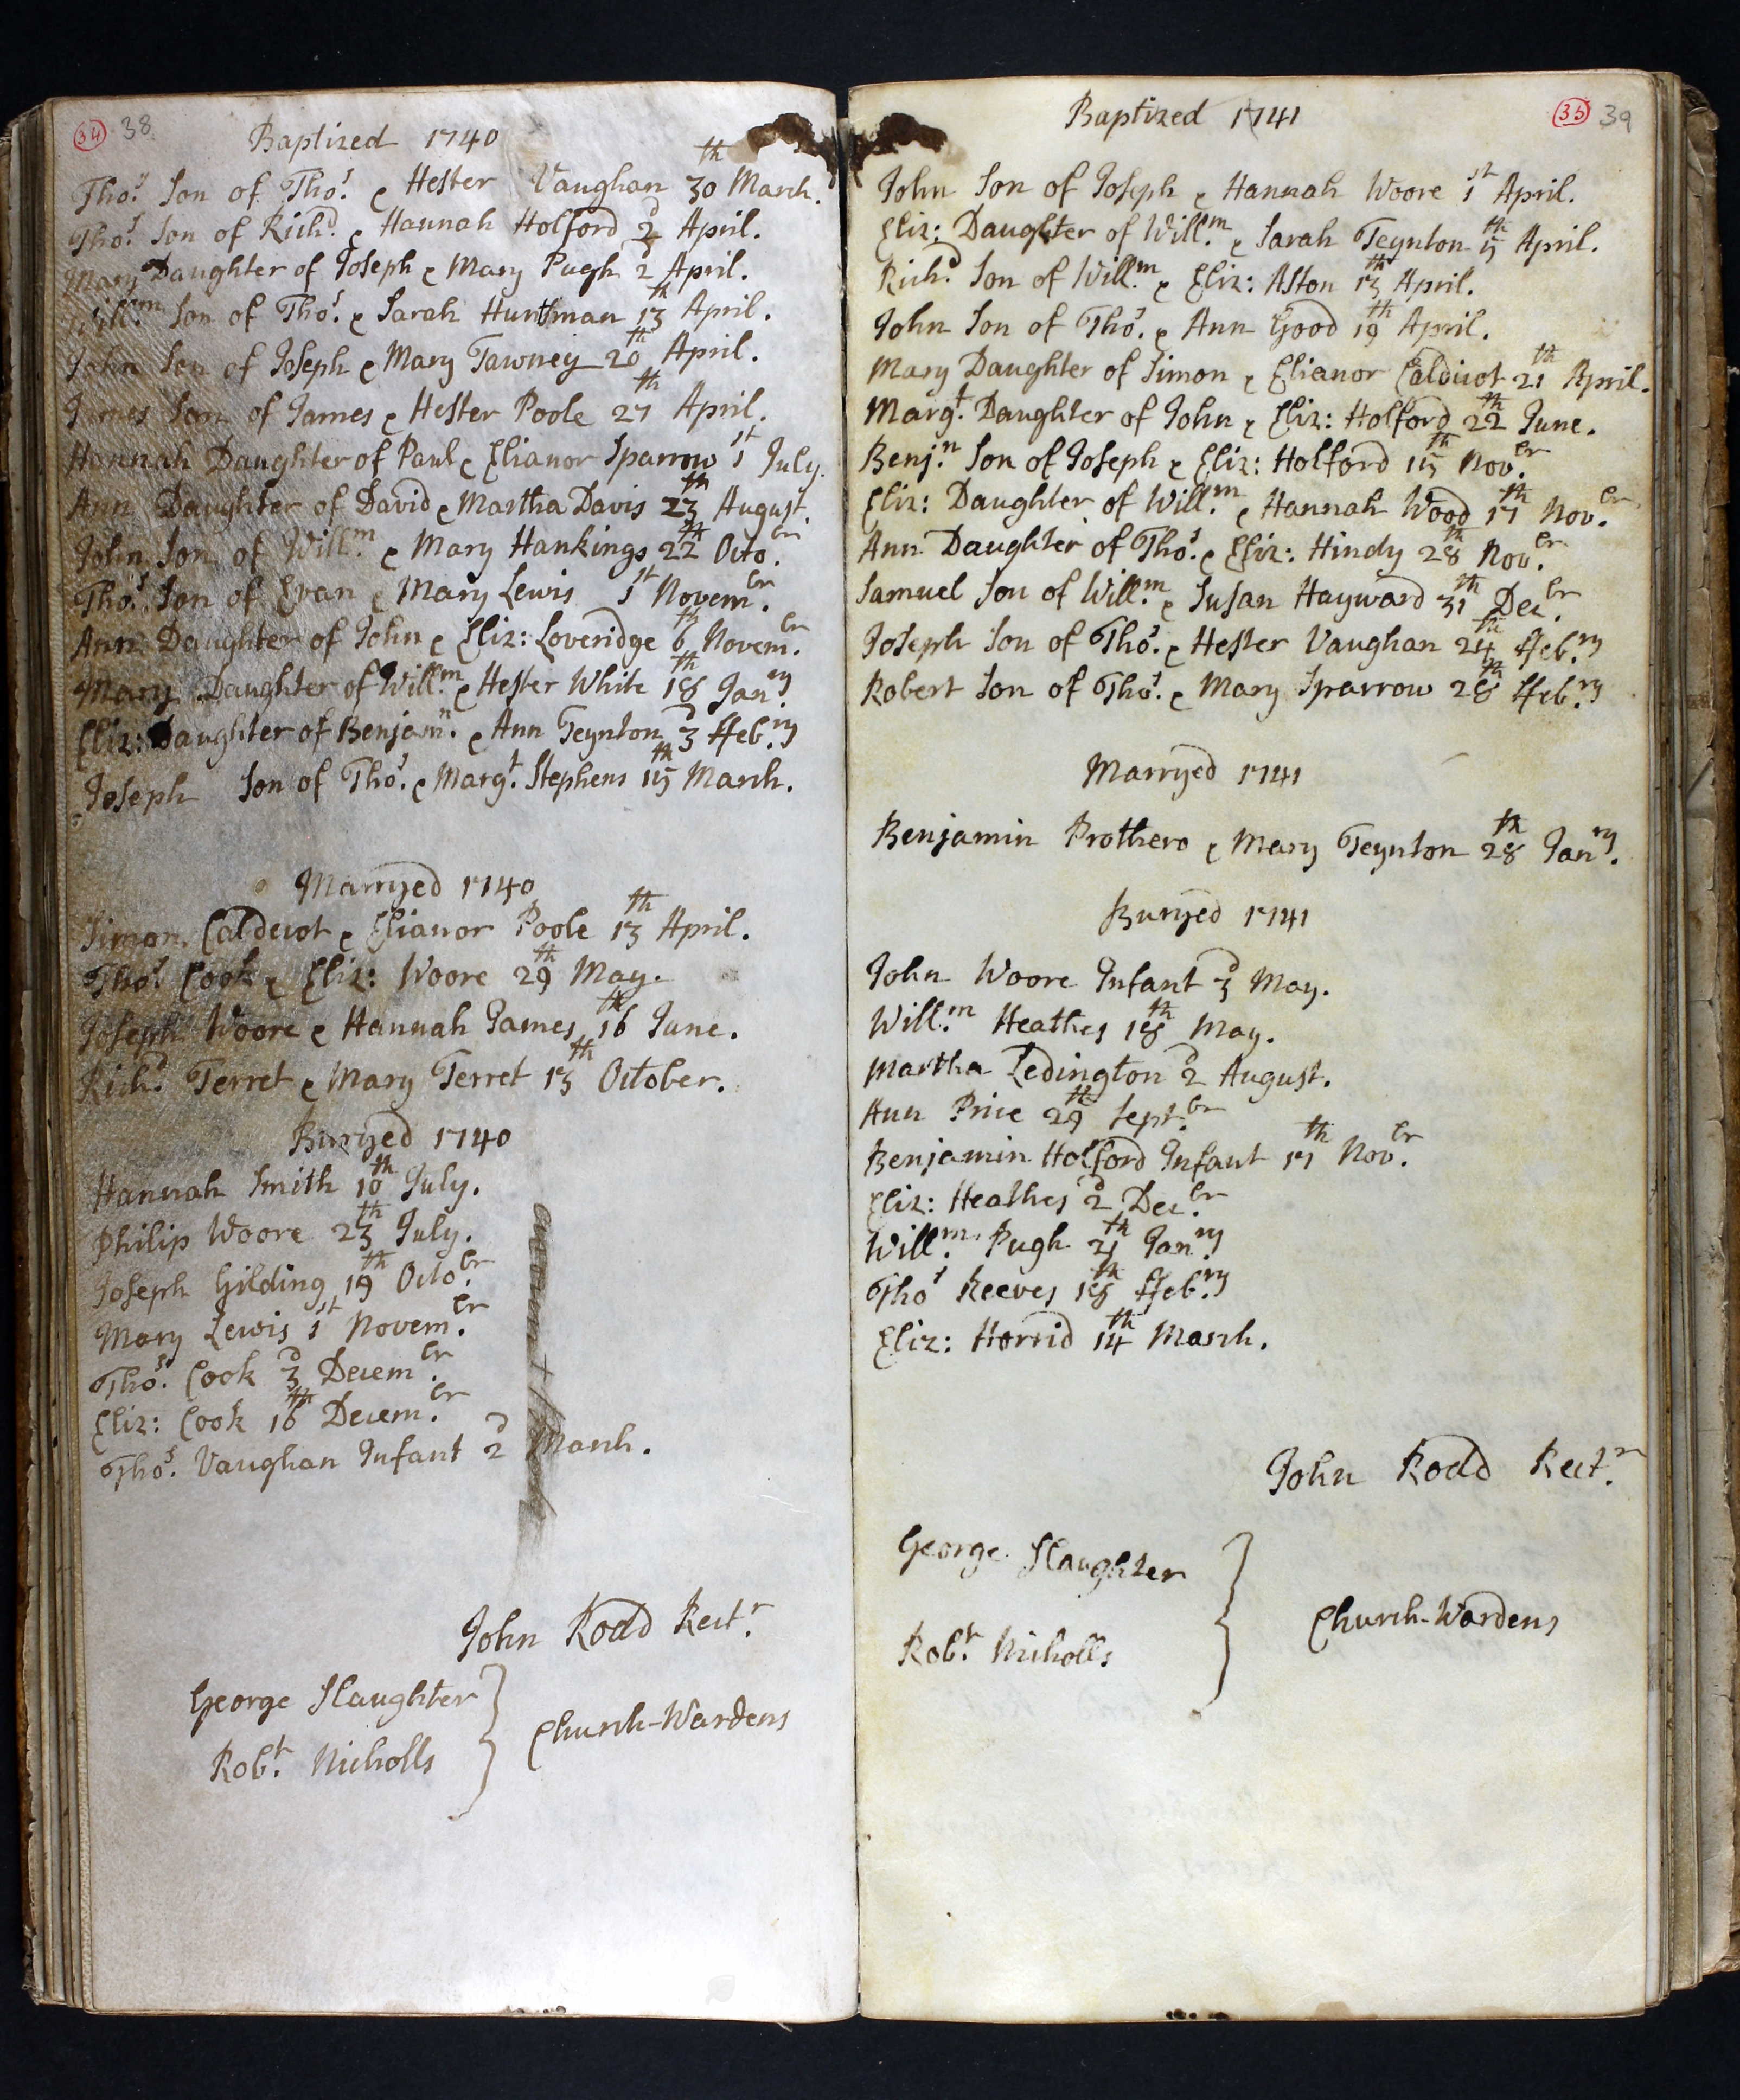 34 38
Baptized 1740
Thos. Son of Thos. & Hester Vaughan 30th March.
Thos. Son of Richd. & Hannah Holford 2d April.
Mary Daughter of Joseph & Mary Pugh 2 April.
Willm. Son of Thos. & Sarah Huntsman 13th April.
John Son of Joseph & Mary Tawney 20th April.
James Son of James & Hester Poole 27th April.
Hannah Daughter of Paul & Elianor Sparrow 1st July.
Ann Daughter of David & Martha Davis 23th August.
John Son of Willm. & Mary Hankings 22th Octobr.
Thos. Son of Evan & Mary Lewis 1st Novembr.
Ann Daughter of John & Eliz: Loveridge 6th Novembr.
Mary Daughter of Willm. & Hester White 18th Janry.
Eliz: Daughter of Benjamn. & Ann Teynton 3d Ffebry.
Joseph Son of Thos. & Margt. Stephens 15th March.
Marryed 1740
Simon Caldicot & Elianor Poole 13th April.
Thos. Cook & Eliz: Woore 29th May.
Joseph Woore & Hannah James 16th June.
Richd. Terret & Mary Terret 13th October.
Burryed 1740
Hannah Smith 10th July.
Philip Woore 23th July.
Joseph Gilding 19th Octobr.
Mary Lewis 1st Novembr.
Thos. Cook 3d Decembr.
Eliz: Cook 16th Decembr.
Thos. Vaughan Infant 2d March.
John Rodd Rectr.
George Slaughter
Robt. Nicholls
Church-Wardens
35 39
Baptized 1741
John Son of Joseph & Hannah Woore 1st April.
Eliz: Daughter of Willm. & Sarah Teynton 5th April.
Richd. Son of Willm. & Eliz: Aston 13th April.
John Son of Thos. & Ann Good 19th April.
Mary Daughter of Simon & Elianor Caldicot 21th April.
Margt. Daughter of John & Eliz: Holford 22th June.
Benjn. Son of Joseph & Eliz: Holford 15th Novbr.
Eliz: Daughter of Willm. & Hannah Wood 17th Novbr.
Ann Daughter of Thos. & Eliz: Hindy 28th Novbr.
Samuel Son of Willm. & Susan Hayward 31th Decbr.
Joseph Son of Thos. & Hester Vaughan 24th Ffebry.
Robert Son of Thos. & Mary Sparrow 28th Ffebry.
Marryed 1741
Benjamin Prothero & Mary Teynton 28th Janry.
Burryed 1741
John Woore Infant 3d May.
Willm. Heathes 18th May.
Martha Ledington 2d August.
Ann Price 29th Septbr.
Benjamin Holford Infant 17th Novbr.
Eliz: Heathes 2d Decbr.
Willm. Pugh Janry.
Thos Reeves 18th Ffebry.
Eliz: Horrid 14th March.
John Rodd Rectr.
George Slaughter
Robt. Nicholls
Church-Wardens